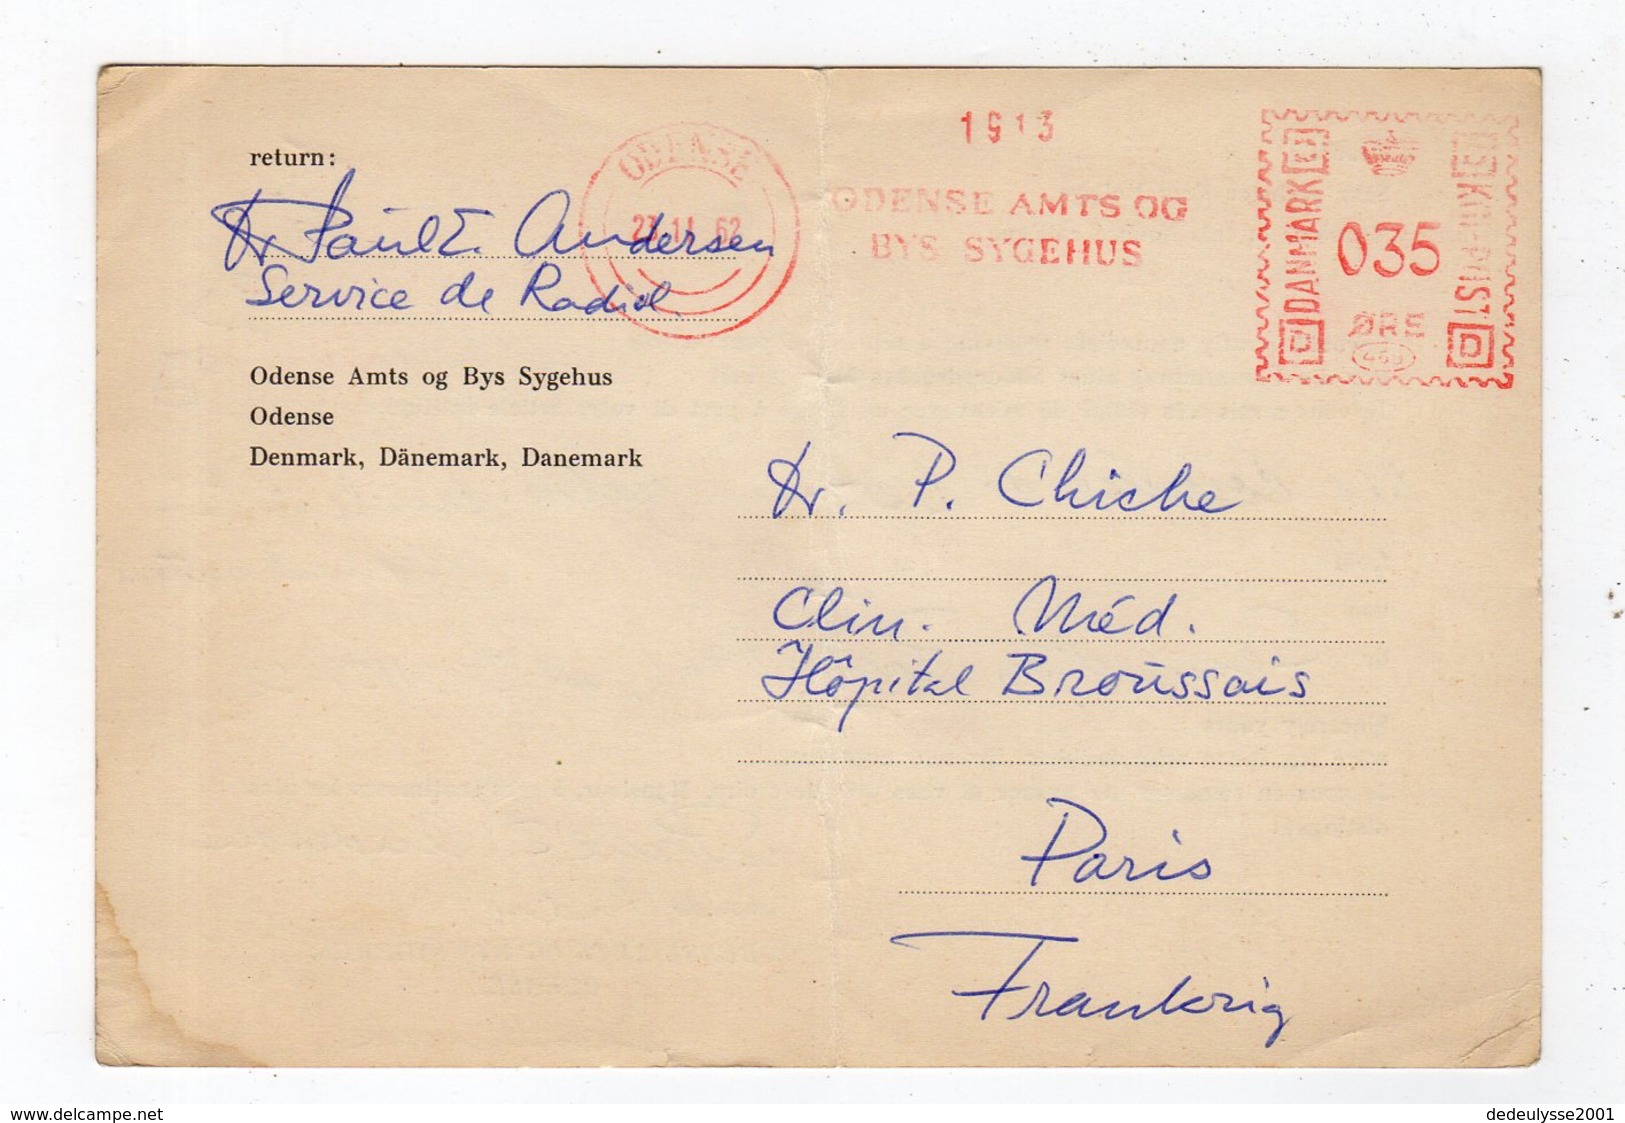 return:
Dr Paul E. Andersen
Service de Radiol.
Odense Amts og Bys Sygehus
Odense
Denmark, Dänemark, Danemark
ODENSE
23.11.62
1913
ODENSE AMTS OG
BYS SYGEHUS
DANMARK
035
ØRE
Dr. P. Chiche
Clin. Méd.
Hôpital Broussais
Paris
Frankrig
www.delcampe.net
dedeulysse2001